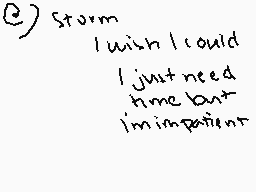 @) storm
I wish I could
I just need
time but
im impatient